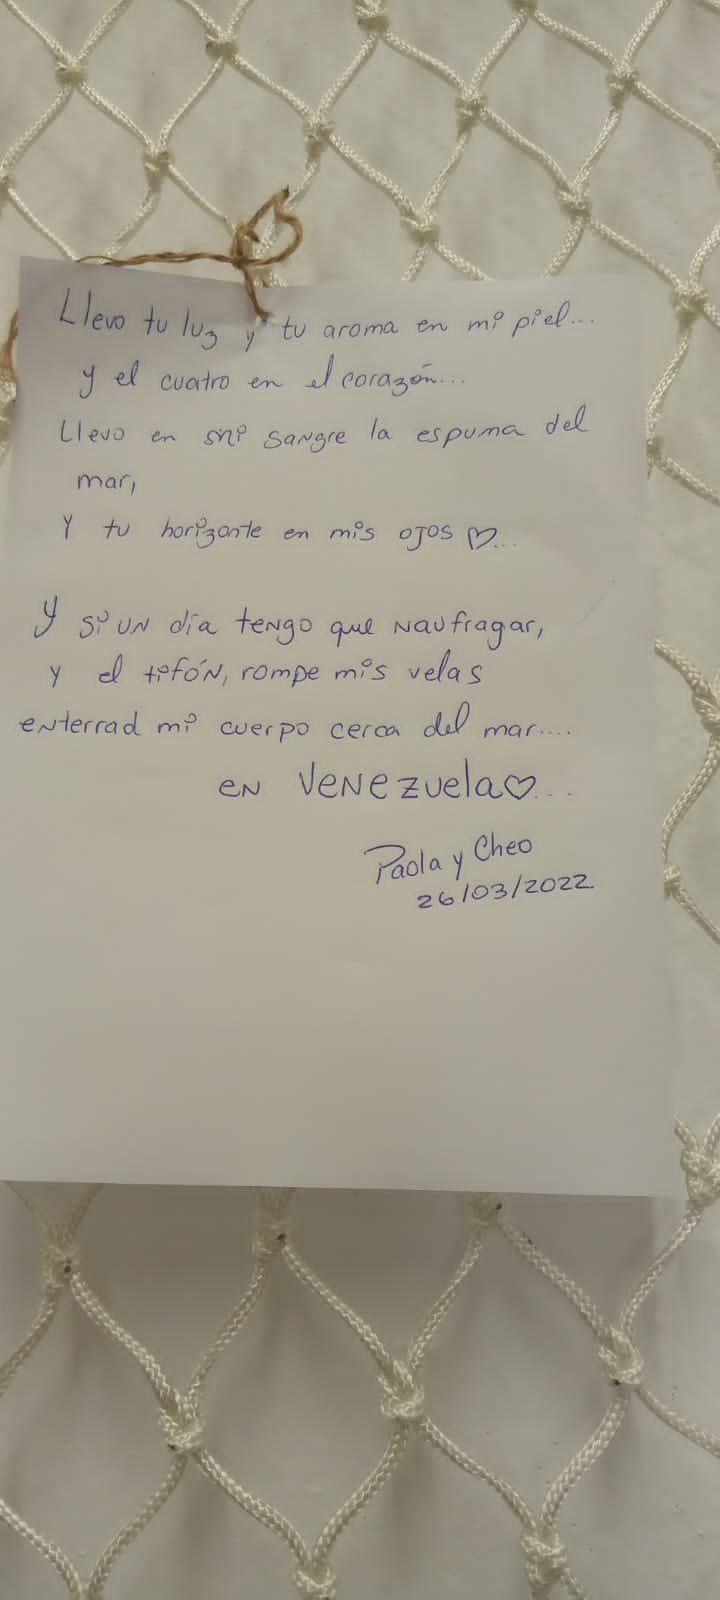 Llevo tu luz y tu aroma en mi piel...
y el cuatro en el corazón...
Llevo en mi sangre la espuma del
mar,
Y tu horizonte en mis ojos ♡...
Y si un día tengo que naufragar,
y el tifón, rompe mis velas
enterrad mi cuerpo cerca del mar....
en Venezuela♡...
Paola y Cheo
26/03/2022